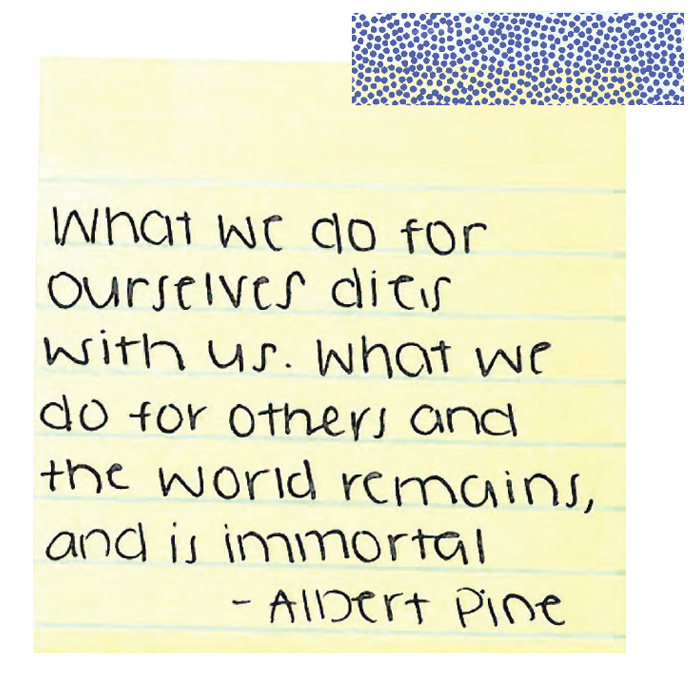 What we do for
ourselves dies
with us. What we
do for others and
the world remains,
and is immortal
- Albert Pine